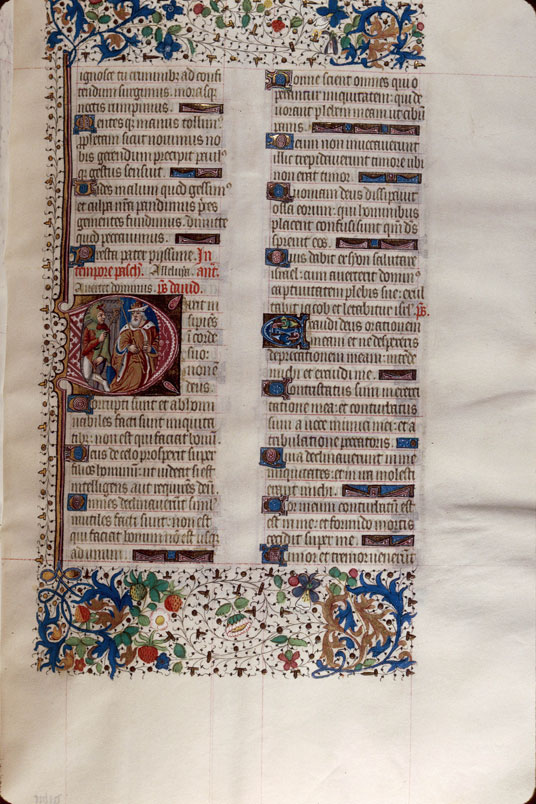 ignosce tu criminibus ad confi
tendum surgimus morasque
nectis rumpimus.
Mentes que manus tollim
propheta sicut novimus no
bis gerendum precepit paulus
que gestis sensuit.
Vides malum quod gessimus
culpa nostra pandimus preces
gementes fundimus dimitte
quod peccavimus.
Presta pater piissime. In
tempore pasch. Alleluia. ant.
Avertet dominus. ps david.
Dixit in
sipiens
in corde
suo:
non est
deus.
Corrupti sunt et abhomi
nabiles facti sunt in iniquita
tibus: non est qui faciat bonum.
Deus de celo prospexit super
filios hominum: ut videat si est
intelligens aut requirens deum.
Omnes declinaverunt simul
inutiles facti sunt: non est
qui faciat bonum non est usque
ad unum.
Nonne scient omnes qui o
perantur iniquitatem: qui de
vorant plebem meam ut cibum
panis.
Deum non invocaverunt
illic trepidaverunt timore ubi
non erat timor.
Quoniam deus dissipavit
ossa eorum: qui hominibus
placent confusi sunt quoniam deus
sprevit eos.
Quis dabit ex syon salutare
israel: cum averterit dominus
captivitatem plebis sue: exul
tabit iacob et letabitur isrl. ps.
Exaudi deus orationem
meam et ne despexeris
deprecationem meam: intende
michi et exaudi me.
Contristatus sum in exerci
tatione mea: et conturbatus
sum a voce inimici et a
tribulatione peccatoris.
Quoniam declinaverunt in me
iniquitates: et in ira moles
ti erant michi.
Cor meum conturbatum
est in me: et formido mortis
cecidit super me.
Timor et tremor venerunt